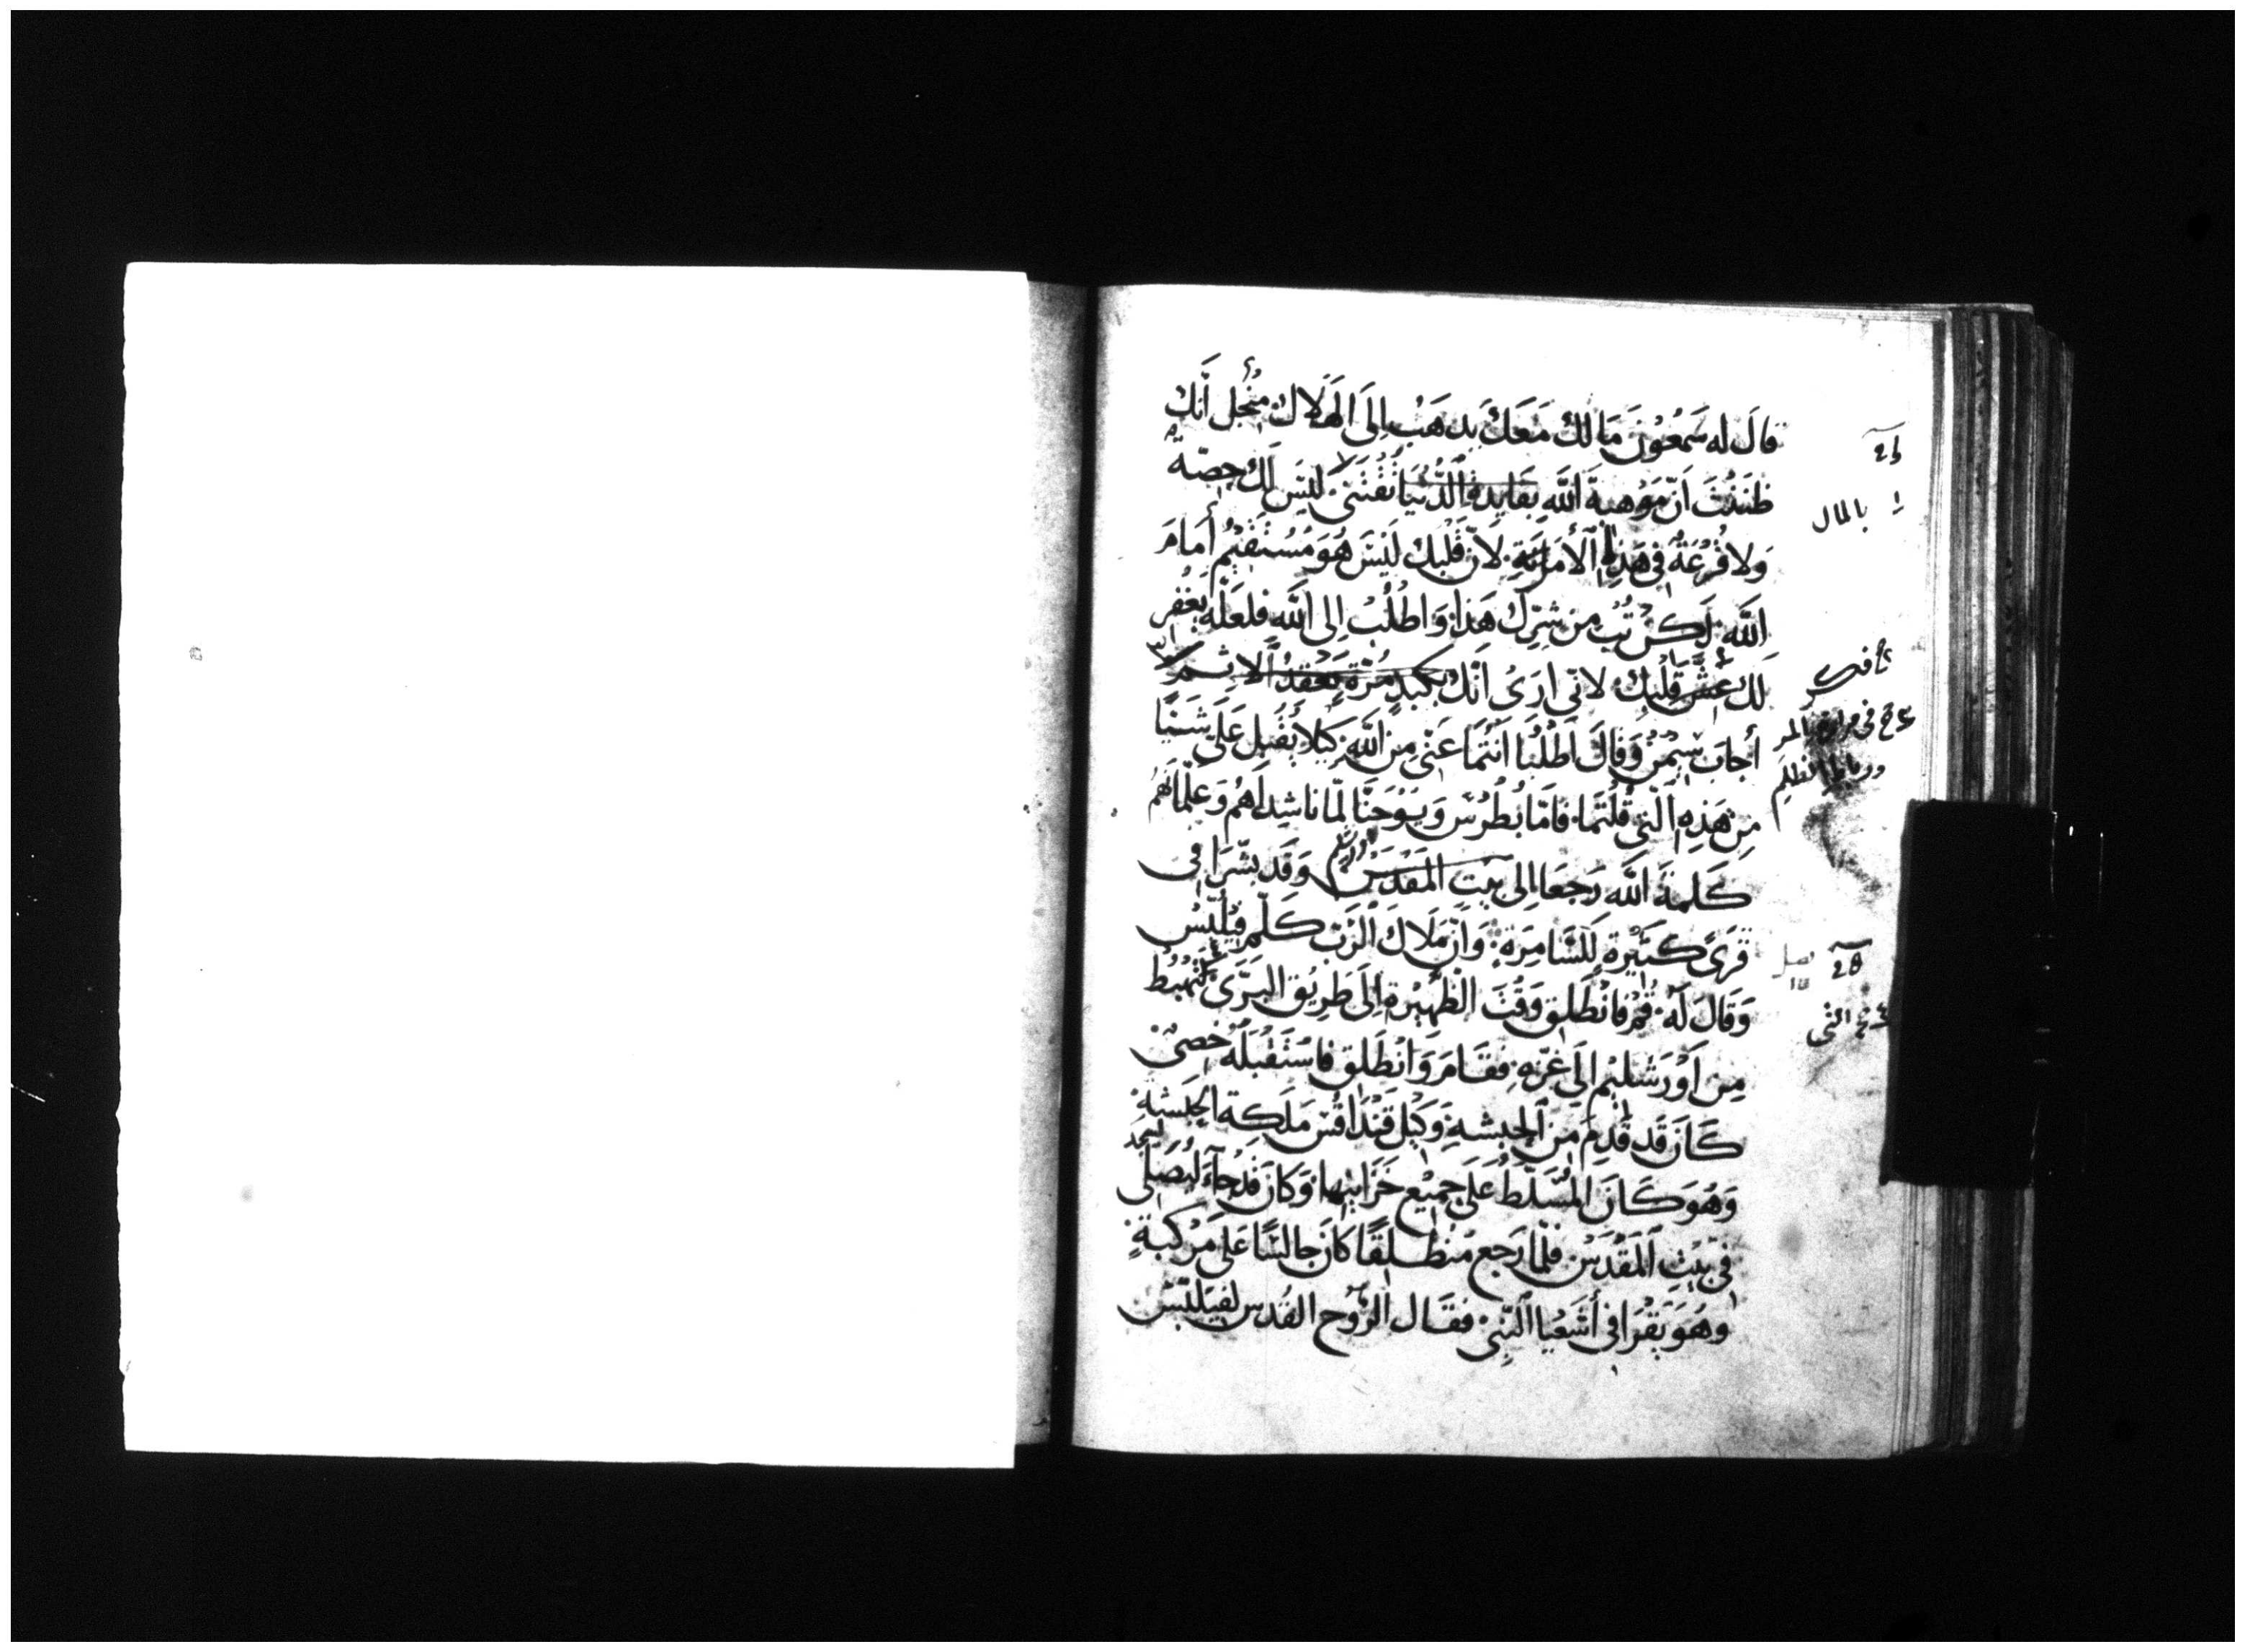 قَالَ له سَمْعُوْنَ مَالَكَ مَعَكَ يَدهَبُ اِلَى الهَلَاك مِنْجُل أنَّك
ظننْتَ اَنّ مَوهبةَ اللّه بفَايدة الدُّنيَا تُقْتَنى ليَسَ لَك حِصّة
وَلا قُرْعَةٌ في هَذِه الأمَانَةِ لاَنّ قَلْبَك لَيْسَ هُوَ مُسْتَقيْم أمَامَ
اللّه لَكن تُبْ من شرِّك هَذا وَاطلُبْ اِلى اللّه فلعَلّه يَغْفر
لَك غشّ قَلْبِك لانّى ارَى اَنّك بكبدٍ مُرّة وَعُقَد الاِثم
أجابَ سِيْمُنْ وَقالَ اطلُبَا انْتُمَا عَنّي مِن اللّه كَيْلا يُقْبِل عَلَىّ شَيْئًا
مِن هَذِه الّتي قُلْتُمَا فَامّا بُطْرُس وَيوْحَنّا لمّا ناشدَاهُم وَعَلّمَاهُم
كَلمةَ اللّه رَجعَا اِلى بيْتِ المَقدَس وَقَد بشّرَا فى
قُرَىً كَثيْرة لِلسَّامِرَة وَاَنّ مَلَاكَ الرَّبّ كَلّم فيْلبّس
وَقَالَ لَه قُمْ فانْطَلِق وَقْتَ الظّهِيْرة اِلَى طَرِيْق البَرّى تَهْبِطْ
مِن اَوْرَشَلِيْم اِلَى غزّه فقَامَ وَانْطَلق فاسْتَقْبَلَه خصىّ
كَانَ قَد قَدِمَ مِن الحبشه وَكيْل قَنْدَاقُس مَلكة الحَبَشَة
وَهُوَ كَانَ المُسَلّطُ عَلى جَمِيْع خَزَاينِهَا وَكَانَ قَد جآءَ ليُصَلّى
في بيْتِ المَقْدَس فلمّا رَجع مُنْطَلِقًا كَانَ جَالسًا عَلى مَرْكبةٍ
وهُوَ يَقْرَا في أشَعْيا النّبِىّ فقَال الرّوْح القُدس لفيْلبّس
بالمال
28